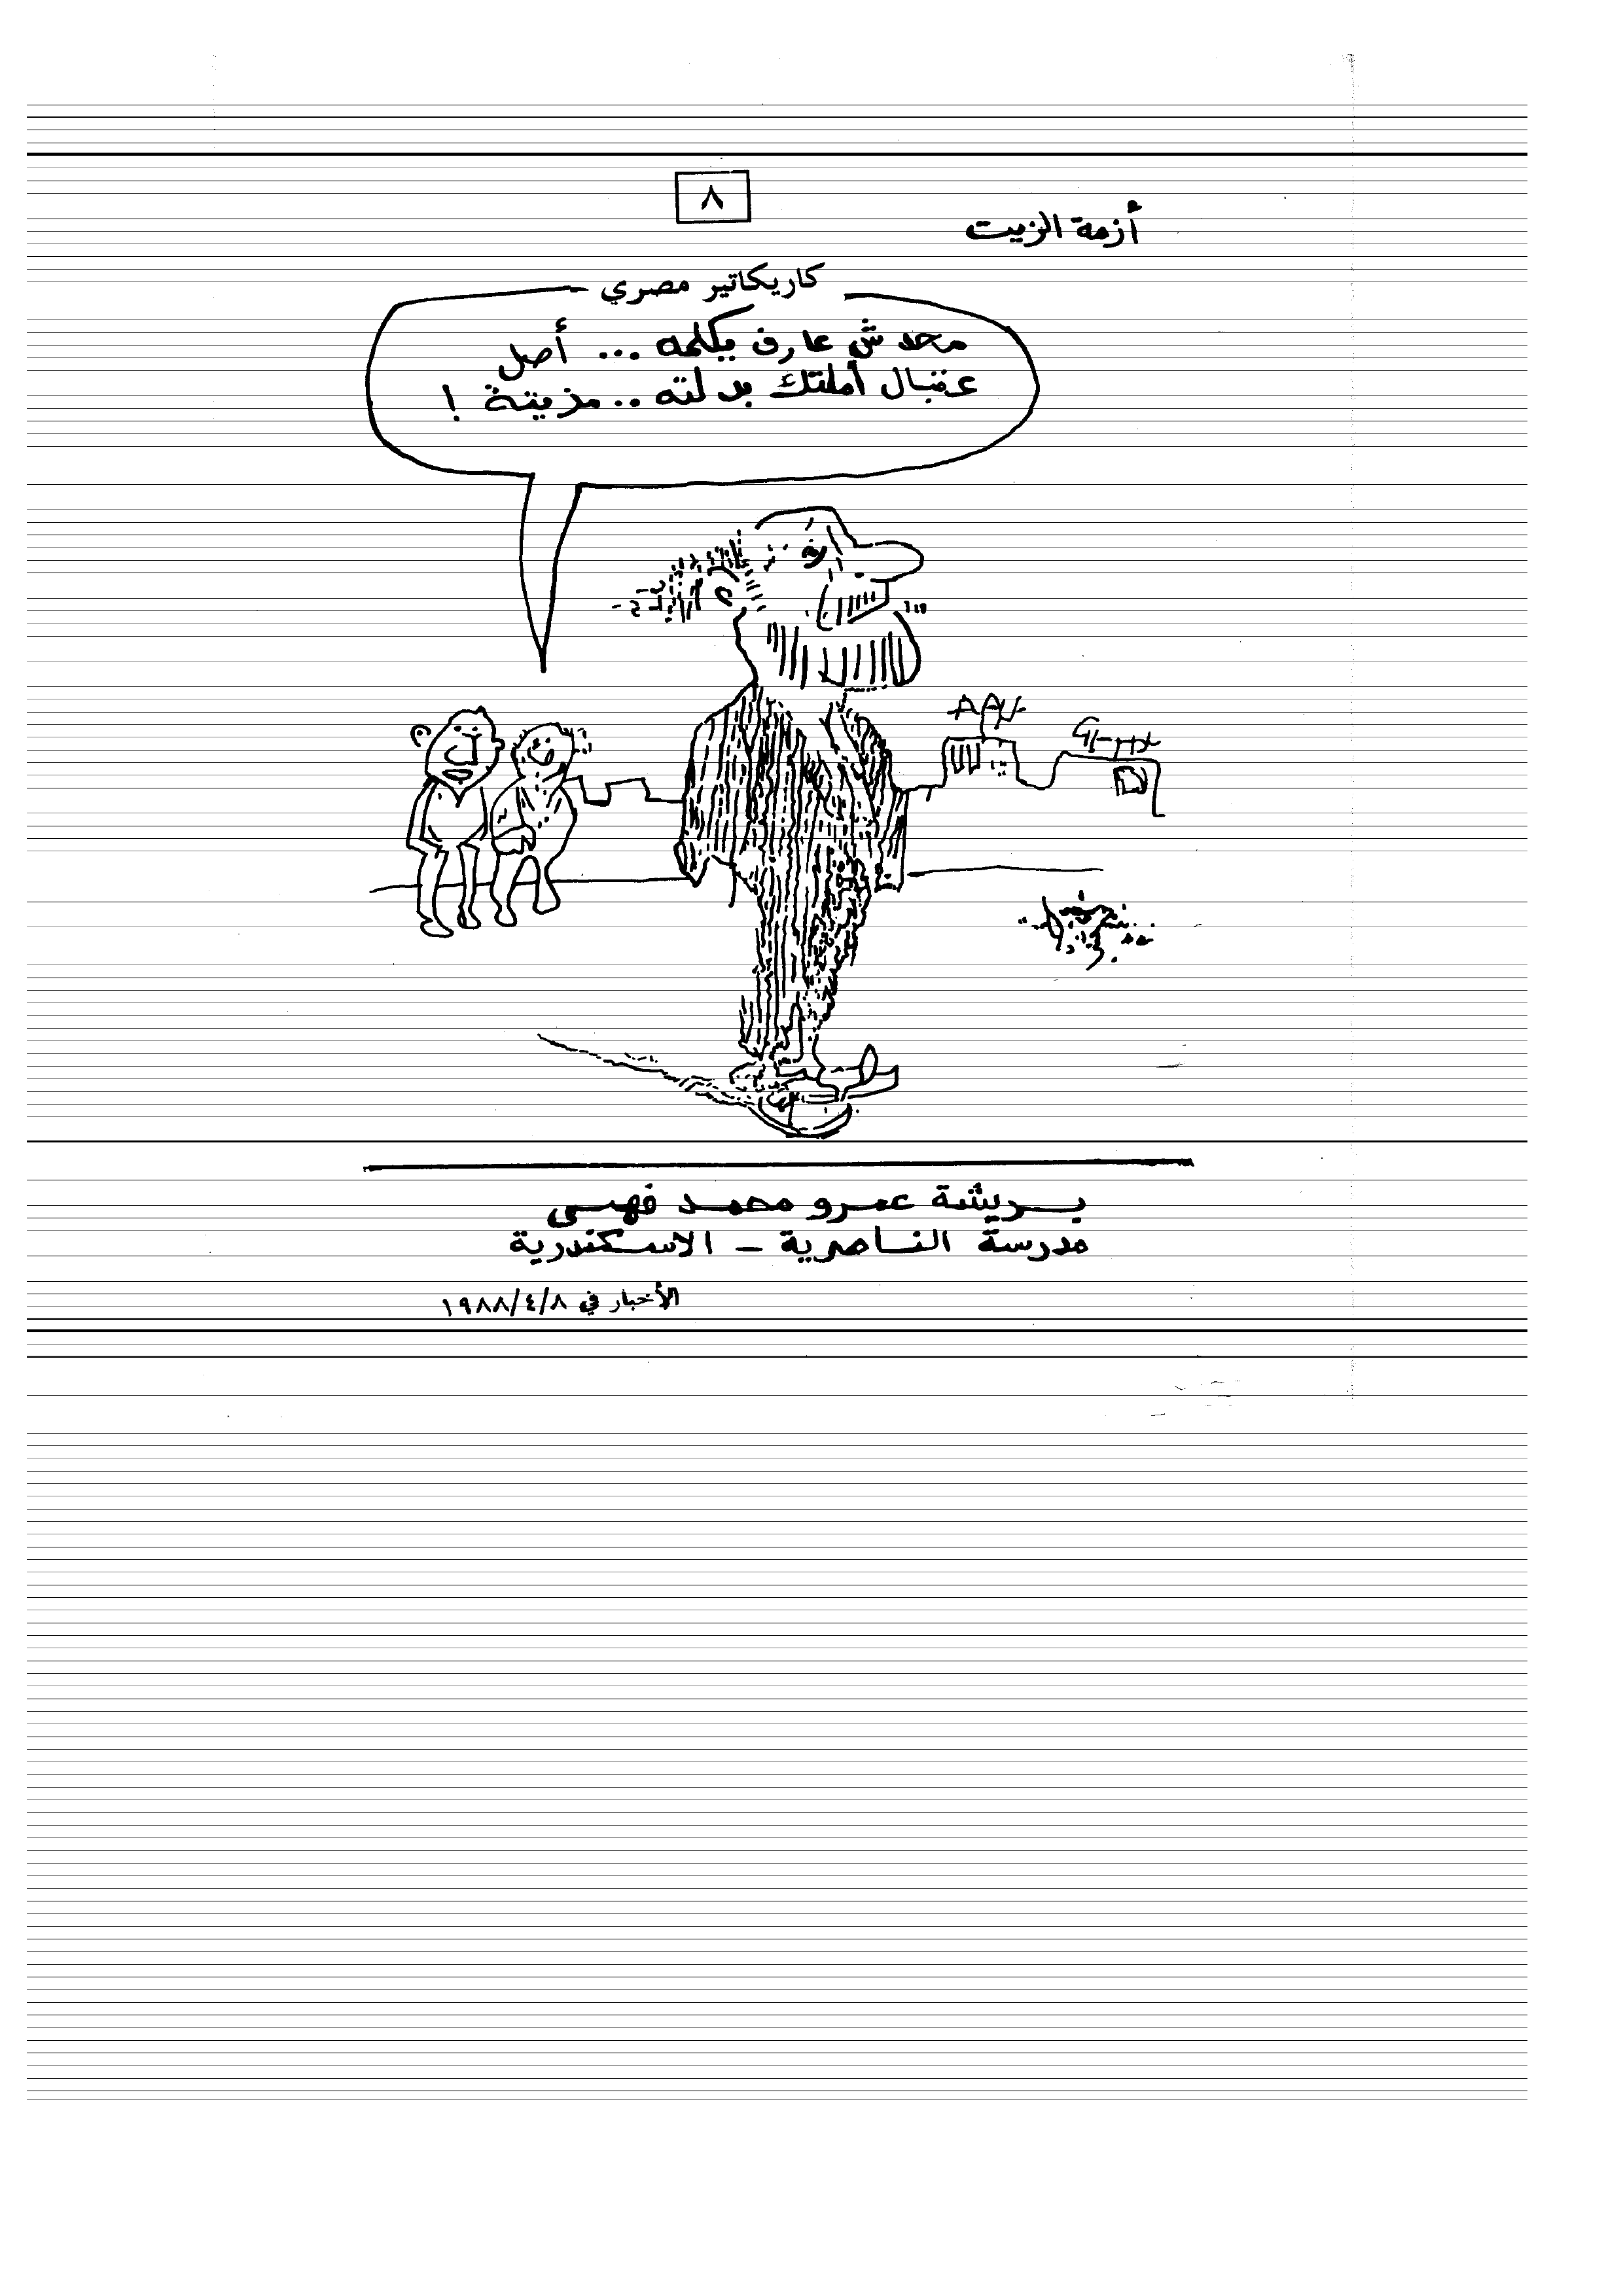 ٨
أزمة الزيت
كاريكاتير مصري
محدش عارف يكلمه ... أصل
عقبال أملتك بدلته .. مزيتة !
بريشة عمرو محمد فهمى
مدرسة الناصرية - الاسكندرية
الأخبار في ١٩٨٨/٤/٨